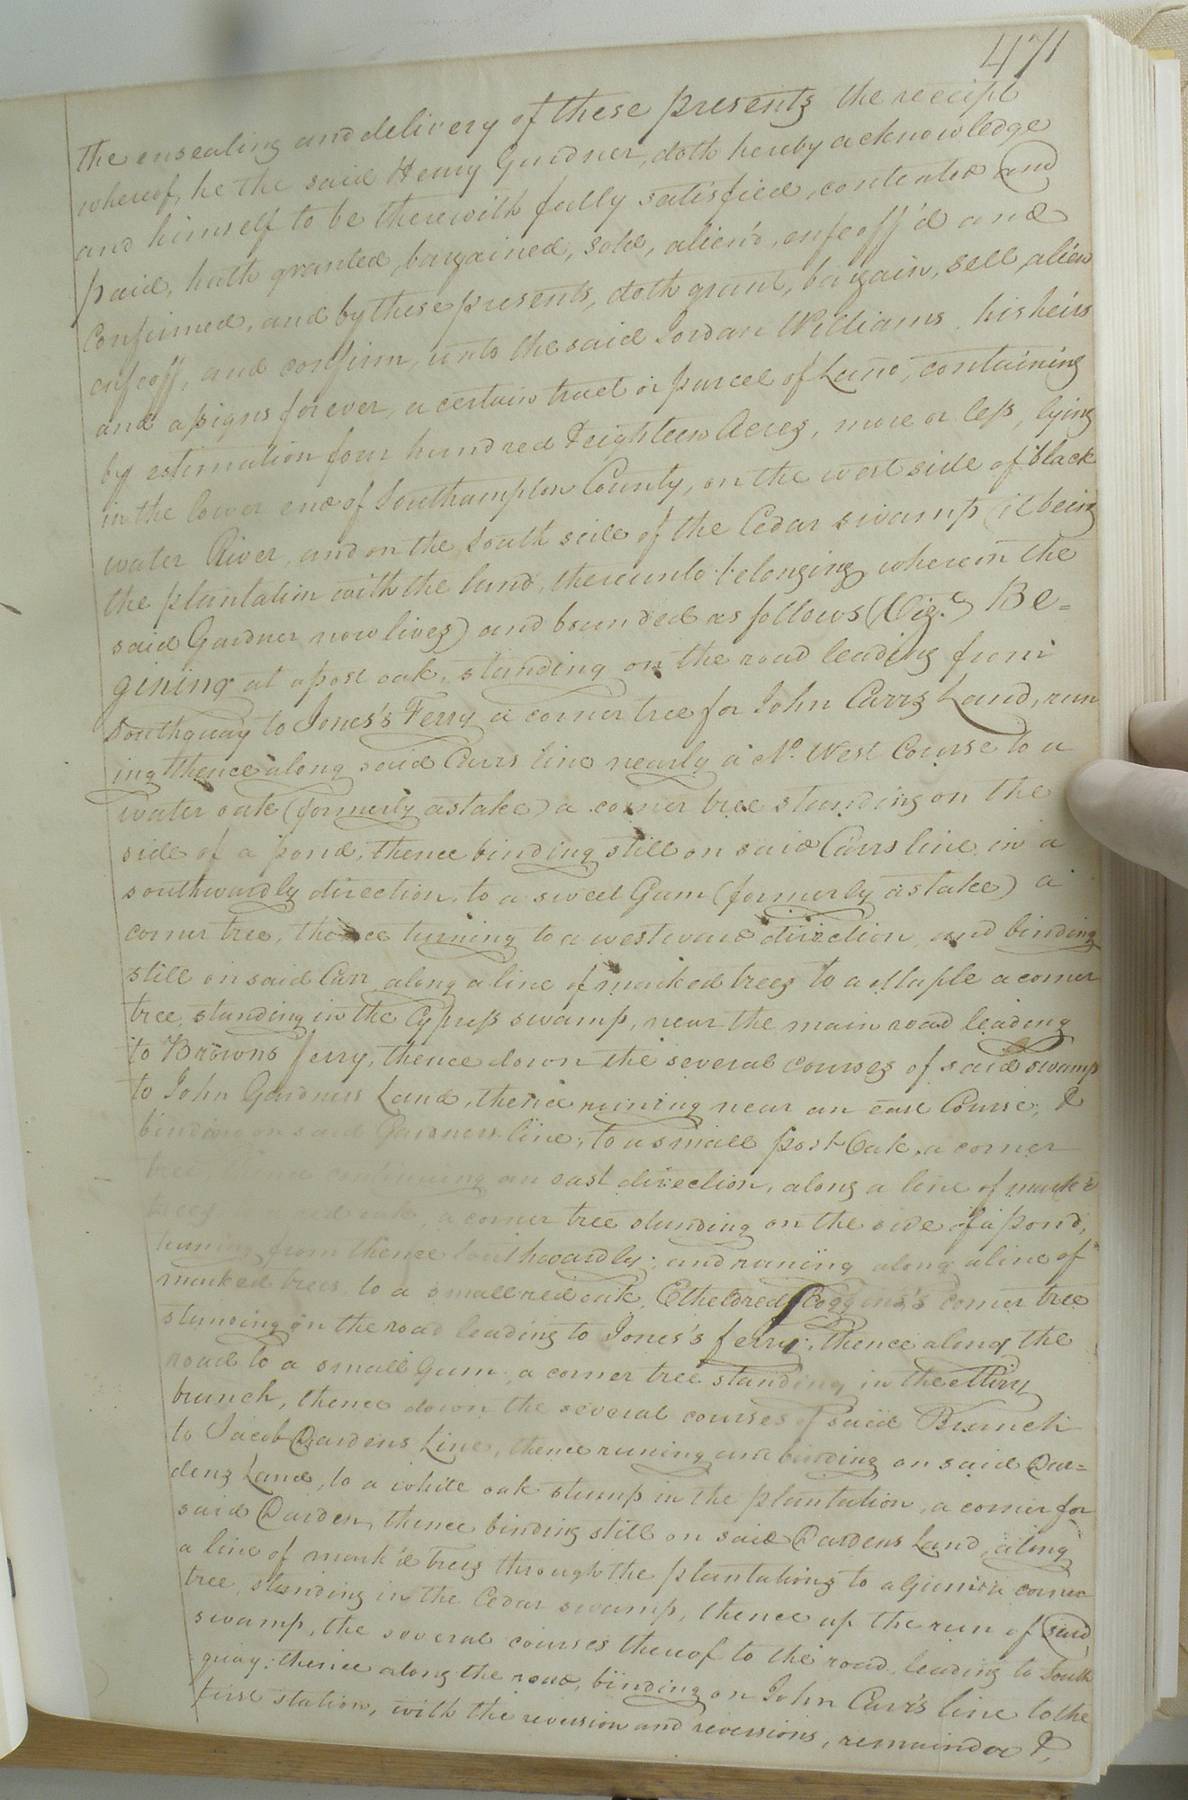 471
the ensealing and delivery of these presents the receipt
whereof, he the said Henry Gardner, doth hereby acknowledge
and himself to be therewith fully satisfied, contented and
paid, hath granted, bargained, sold, alien'd, enfeoff'd and
Confirmed, and by these presents, doth grant, bargain, sell, alien
enfeoff, and confirm, unto the said Jordan Williams, his heirs
and assigns forever, a certain tract or parcel of Land, containing
by estimation four hundred & eighteen Acres, more or less, lying
in the lower end of Southampton County, on the west side of black
water River, and on the South side of the Cedar swamp (it being
the plantation with the land, thereunto belonging wherein the
said Gardner now lives) and bounded as follows (Viz.t) Be=
gining at a post oak, standing on the road leading from
Southquay to Jones's Ferry a corner tree for John Carrs Land, run
ing thence along said Carrs line nearly a No. West Course to a
water oak (formerly a stake) a corner tree standing on the
side of a pond, thence binding still on said Carrs line in a
southwardly direction, to a sweet Gum (formerly a stake) a
corner tree, thence turning to a westward direction and binding
still on said Carr along a line of marked trees to a Maple a corner
tree, standing in the Cypress swamp, near the main road leading
to Browns ferry, thence down the several courses of said swamp
to John Gardners Land, thence runing near an east Course, &
binding on said Gardners line, to a small post Oak, a corner
tree continuing an east direction, along a line of mark'd
trees red oak, a corner tree standing on the side of a pond,
turning from thence Southwardly; and runing along a line of
marked trees to a small red oak, Etheldred Coggins's corner tree
standing on the road leading to Jones's ferry; thence along the
road to a small Gum, a corner tree standing in the Miry
branch, thence down the several courses of said Branch
to Jacob Dardens Line, thence runing and binding on said Dar=
dens Land, to a white oak stump in the plantation, a corner for
said Darden, thence binding still on said Dardens Land, along
a line of mark'd trees through the plantations to a Gum a corner
tree, standing in the Cedar swamp, thence up the run of said
swamp, the several courses thereof to the road leading to South
quay; thence along the road, binding on John Carr's line to the
first station, with the reversion and reversions, remainder &,